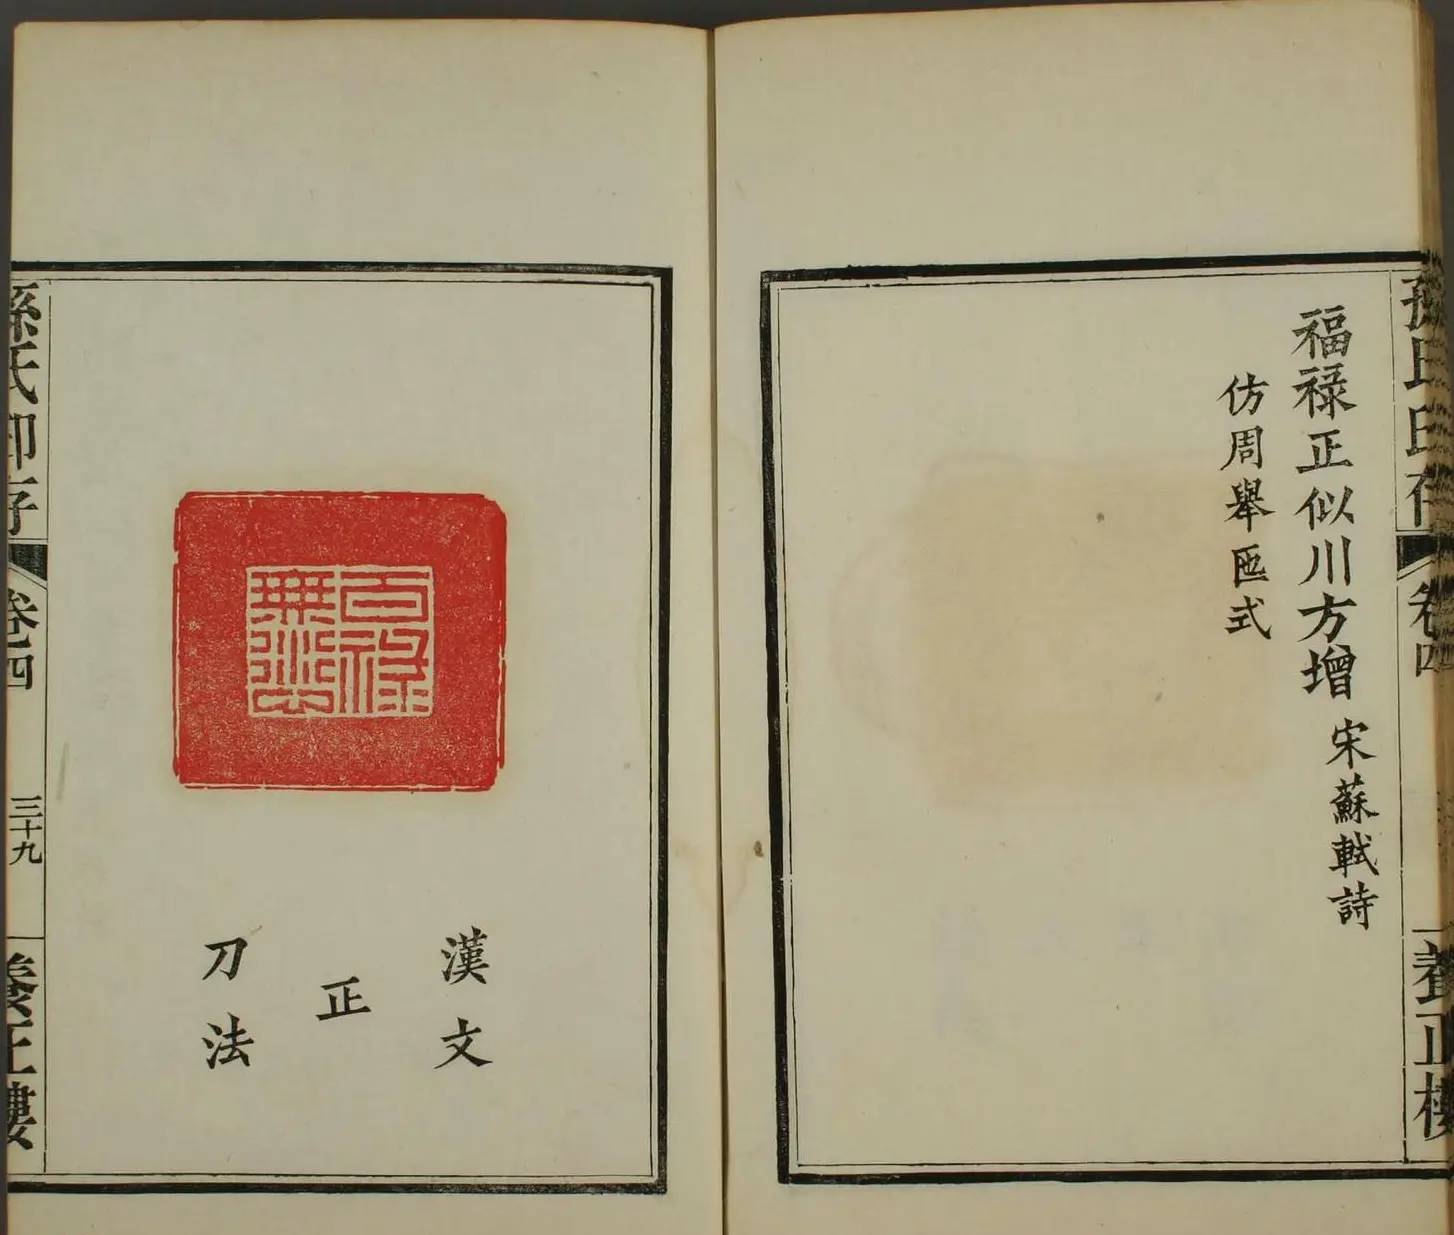 孫氏印存 卷四 養正樓
福祿正似川方增 宋蘇軾詩
仿周舉匜式
百祿
無愆
漢文
正
刀法
孫氏印存 卷四 三十九 養正樓